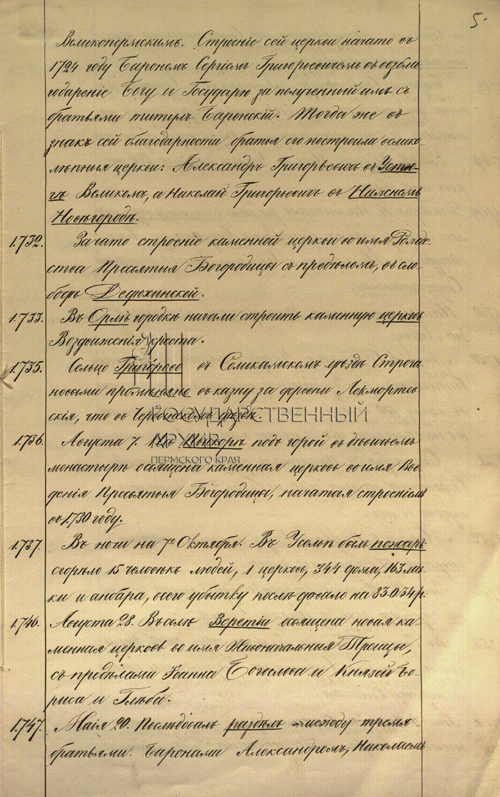 5.
Великопермскимъ. Строеніе сей церкви начато въ
1724 году Барономъ Сергіемъ Григорьевичемъ въ возбла
годареніе Богу и Государю за полученный имъ съ
братьями титулъ Баронскій. Тогда же въ
знакъ сей благодарности братья его построили велико
лѣпныя церкви: Александръ Григорьевичъ въ Устю-
гѣ Великомъ, а Николай Григорьевичъ въ Нижнемъ
Новѣгородѣ.
1732. Зачато строеніе каменной церкви во имя Рожде
ства Пресвятыя Богородицы съ предѣломъ, въ сло-
бодѣ Дедюхинской.
1733. Въ Орлѣ городкѣ начали строить каменную церковь
Воздвиженія Креста.
1735. Сельцо Григорово въ Соликамскомъ уѣздѣ Строга
новыми промѣняно въ казну за деревни Лекмортов
скія, что въ Чердынскомъ уѣздѣ.
ГОСУДАРСТВЕННЫЙ
АРХИВ
ПЕРМСКОГО КРАЯ
1736. Августа 7. На Пыскорѣ подъ горой въ бывшемъ
монастырѣ освящена каменная церковь во имя Вве
денія Пресвятыя Богородицы, начатая строеніемъ
въ 1730 году.
1737. Въ ночи на 7е Октября. Въ Усольѣ былъ пожаръ
сгорѣло 15 человѣкъ людей, 1 церковь, 344 дома, 163 лав
ки и анбара, всего убытку послѣдовало на 83.034 р.
1746. Августа 28. Въ селѣ Веретіи освящена новая ка-
менная церковь во имя Живоначальныя Троицы,
съ предѣлами Іоанна Богослова и Князей Бо-
риса и Глѣба.
1747. Маія 20. Послѣдовалъ раздѣлъ между тремя
братьями Баронами Александромъ, Николаемъ